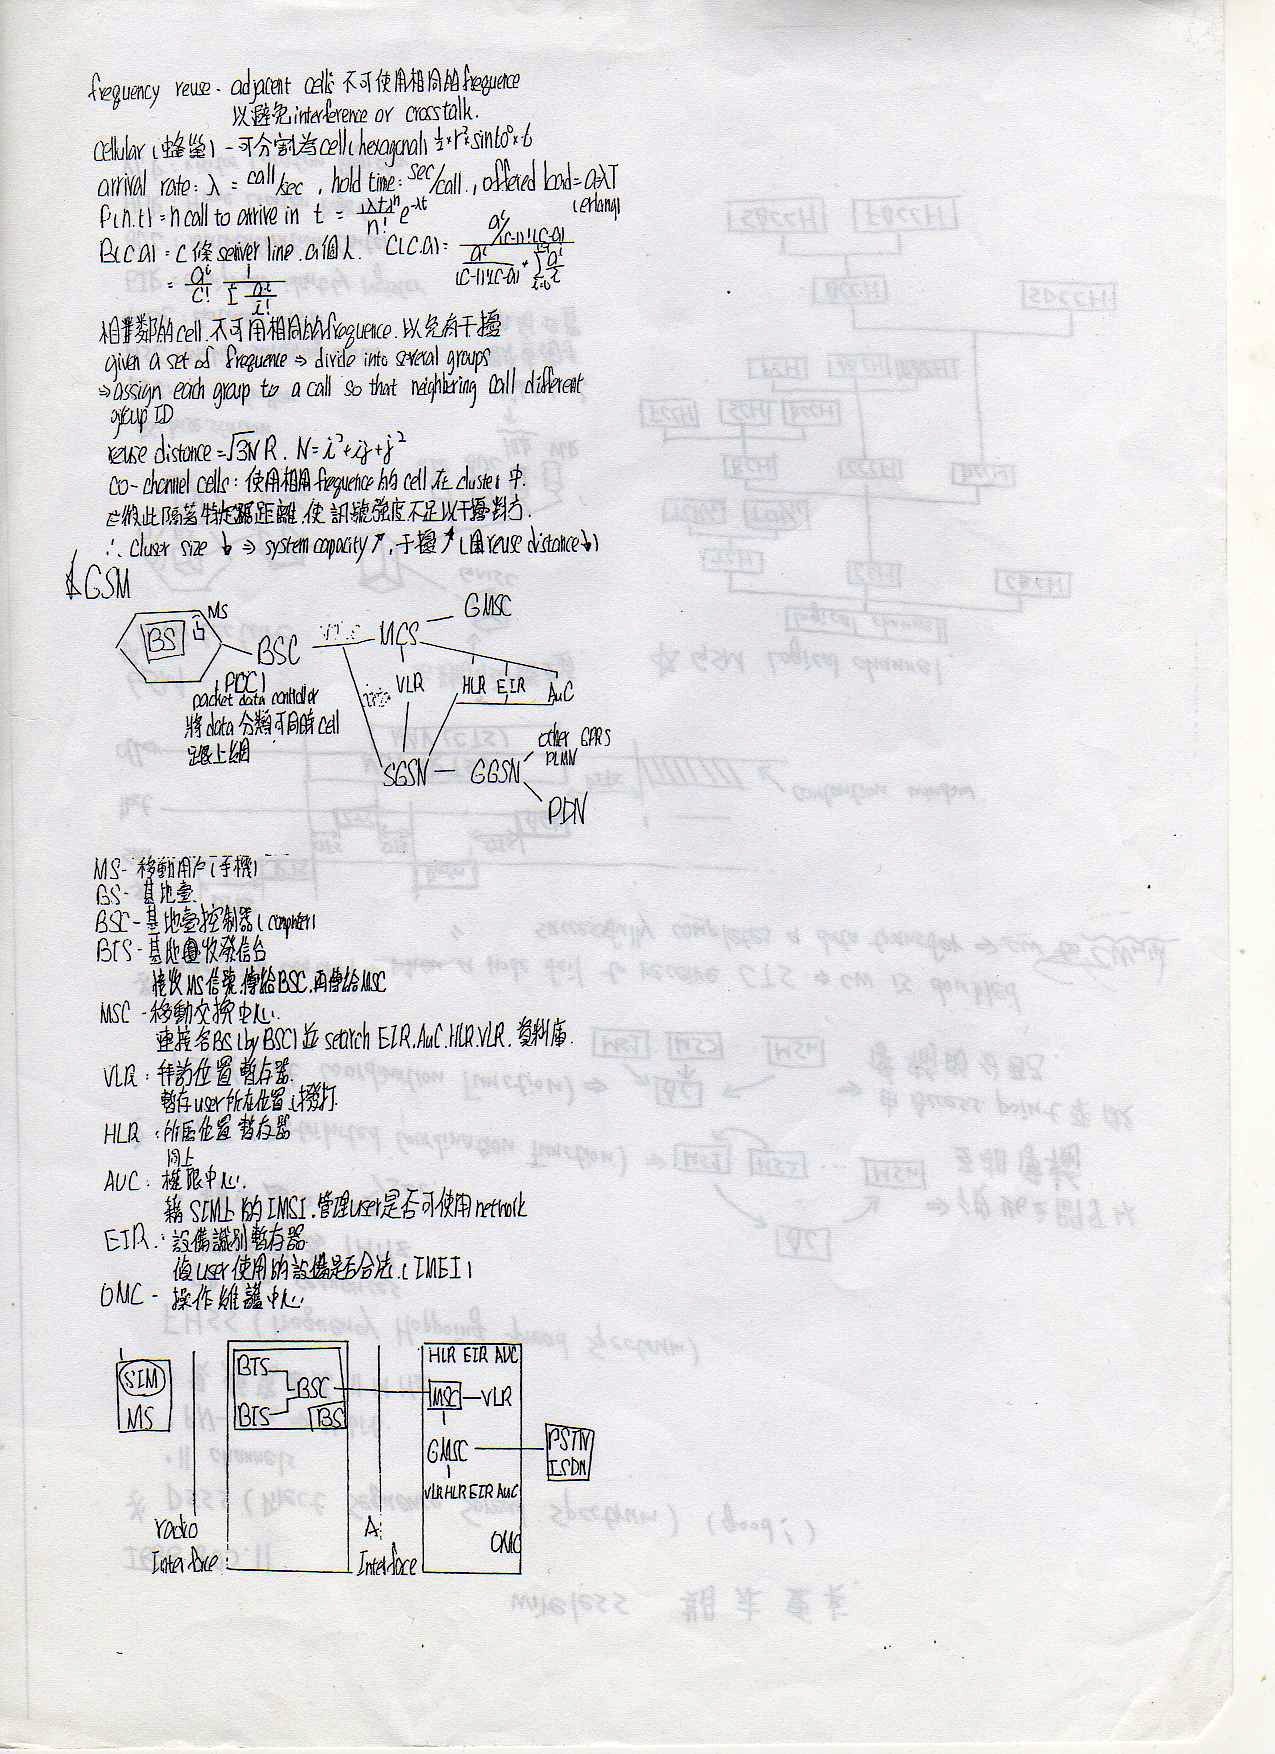 frequency reuse - adjacent cells 不可使用相同的frequence
以避免interference or crosstalk.
Cellular (蜂巢) - 可分割為cell(hexagonal) ½*r²*sin60°*6
arrival rate: λ = call/sec , hold time: sec/call., offered load = a=λT
(erlang)
P(n.t) = n call to arrive in t = (λt)^n/n! e^-λt
B(C.a) = C 條 server line. a個人. C(C.a) =
相鄰的cell.不可用相同的frequence.以免有干擾
given a set of frequence ⇒ divide into several groups
⇒ assign each group to a call so that neighbering call different
group ID
reuse distance = √3N R. N = i²+ij+j²
co-channel cells: 使用相用frequence的cell在cluster 中.
彼此隔著特定距離.使訊號強度不足以干擾對方.
∴ Cluser size ↓ ⇒ system capacity ↗, 干擾 ↗ (因reuse distance↓)
GSM
MS
BS
BSC
MCS
GMSC
(PCC)
packet data controller
將data分類可同時cell
上網
VLR
HLR EIR AuC
SGSN — GGSN
other GPRS
PLMN
PDN
MS- 移動用戶(手機)
BS- 基地臺.
BSC-基地臺控制器(computer)
BTS-基地臺收發信台
接收MS信號.傳給BSC.再傳給MSC
MSC -移動交換中心.
連接各BS(by BSC)並 search EIR.AuC.HLR.VLR. 資料庫.
VLR: 拜訪位置暫存器.
暫存user所在位置.(撥打.
HLR :所屬位置暫存器
同上
AUC: 權限中心.
藉SIM上的IMSI.管理user是否可使用network
EIR.: 設備識別暫存器
偵user使用的設備是否合法.(IMEI)
OMC - 操作維護中心.
SIM
MS
BTS
BTS
BSC
BS
HLR EIR AUC
MSC—VLR
GMSC
PSTN
ISDN
VLR HLR EIR AuC
OMC
radio
Interface
A
Interface